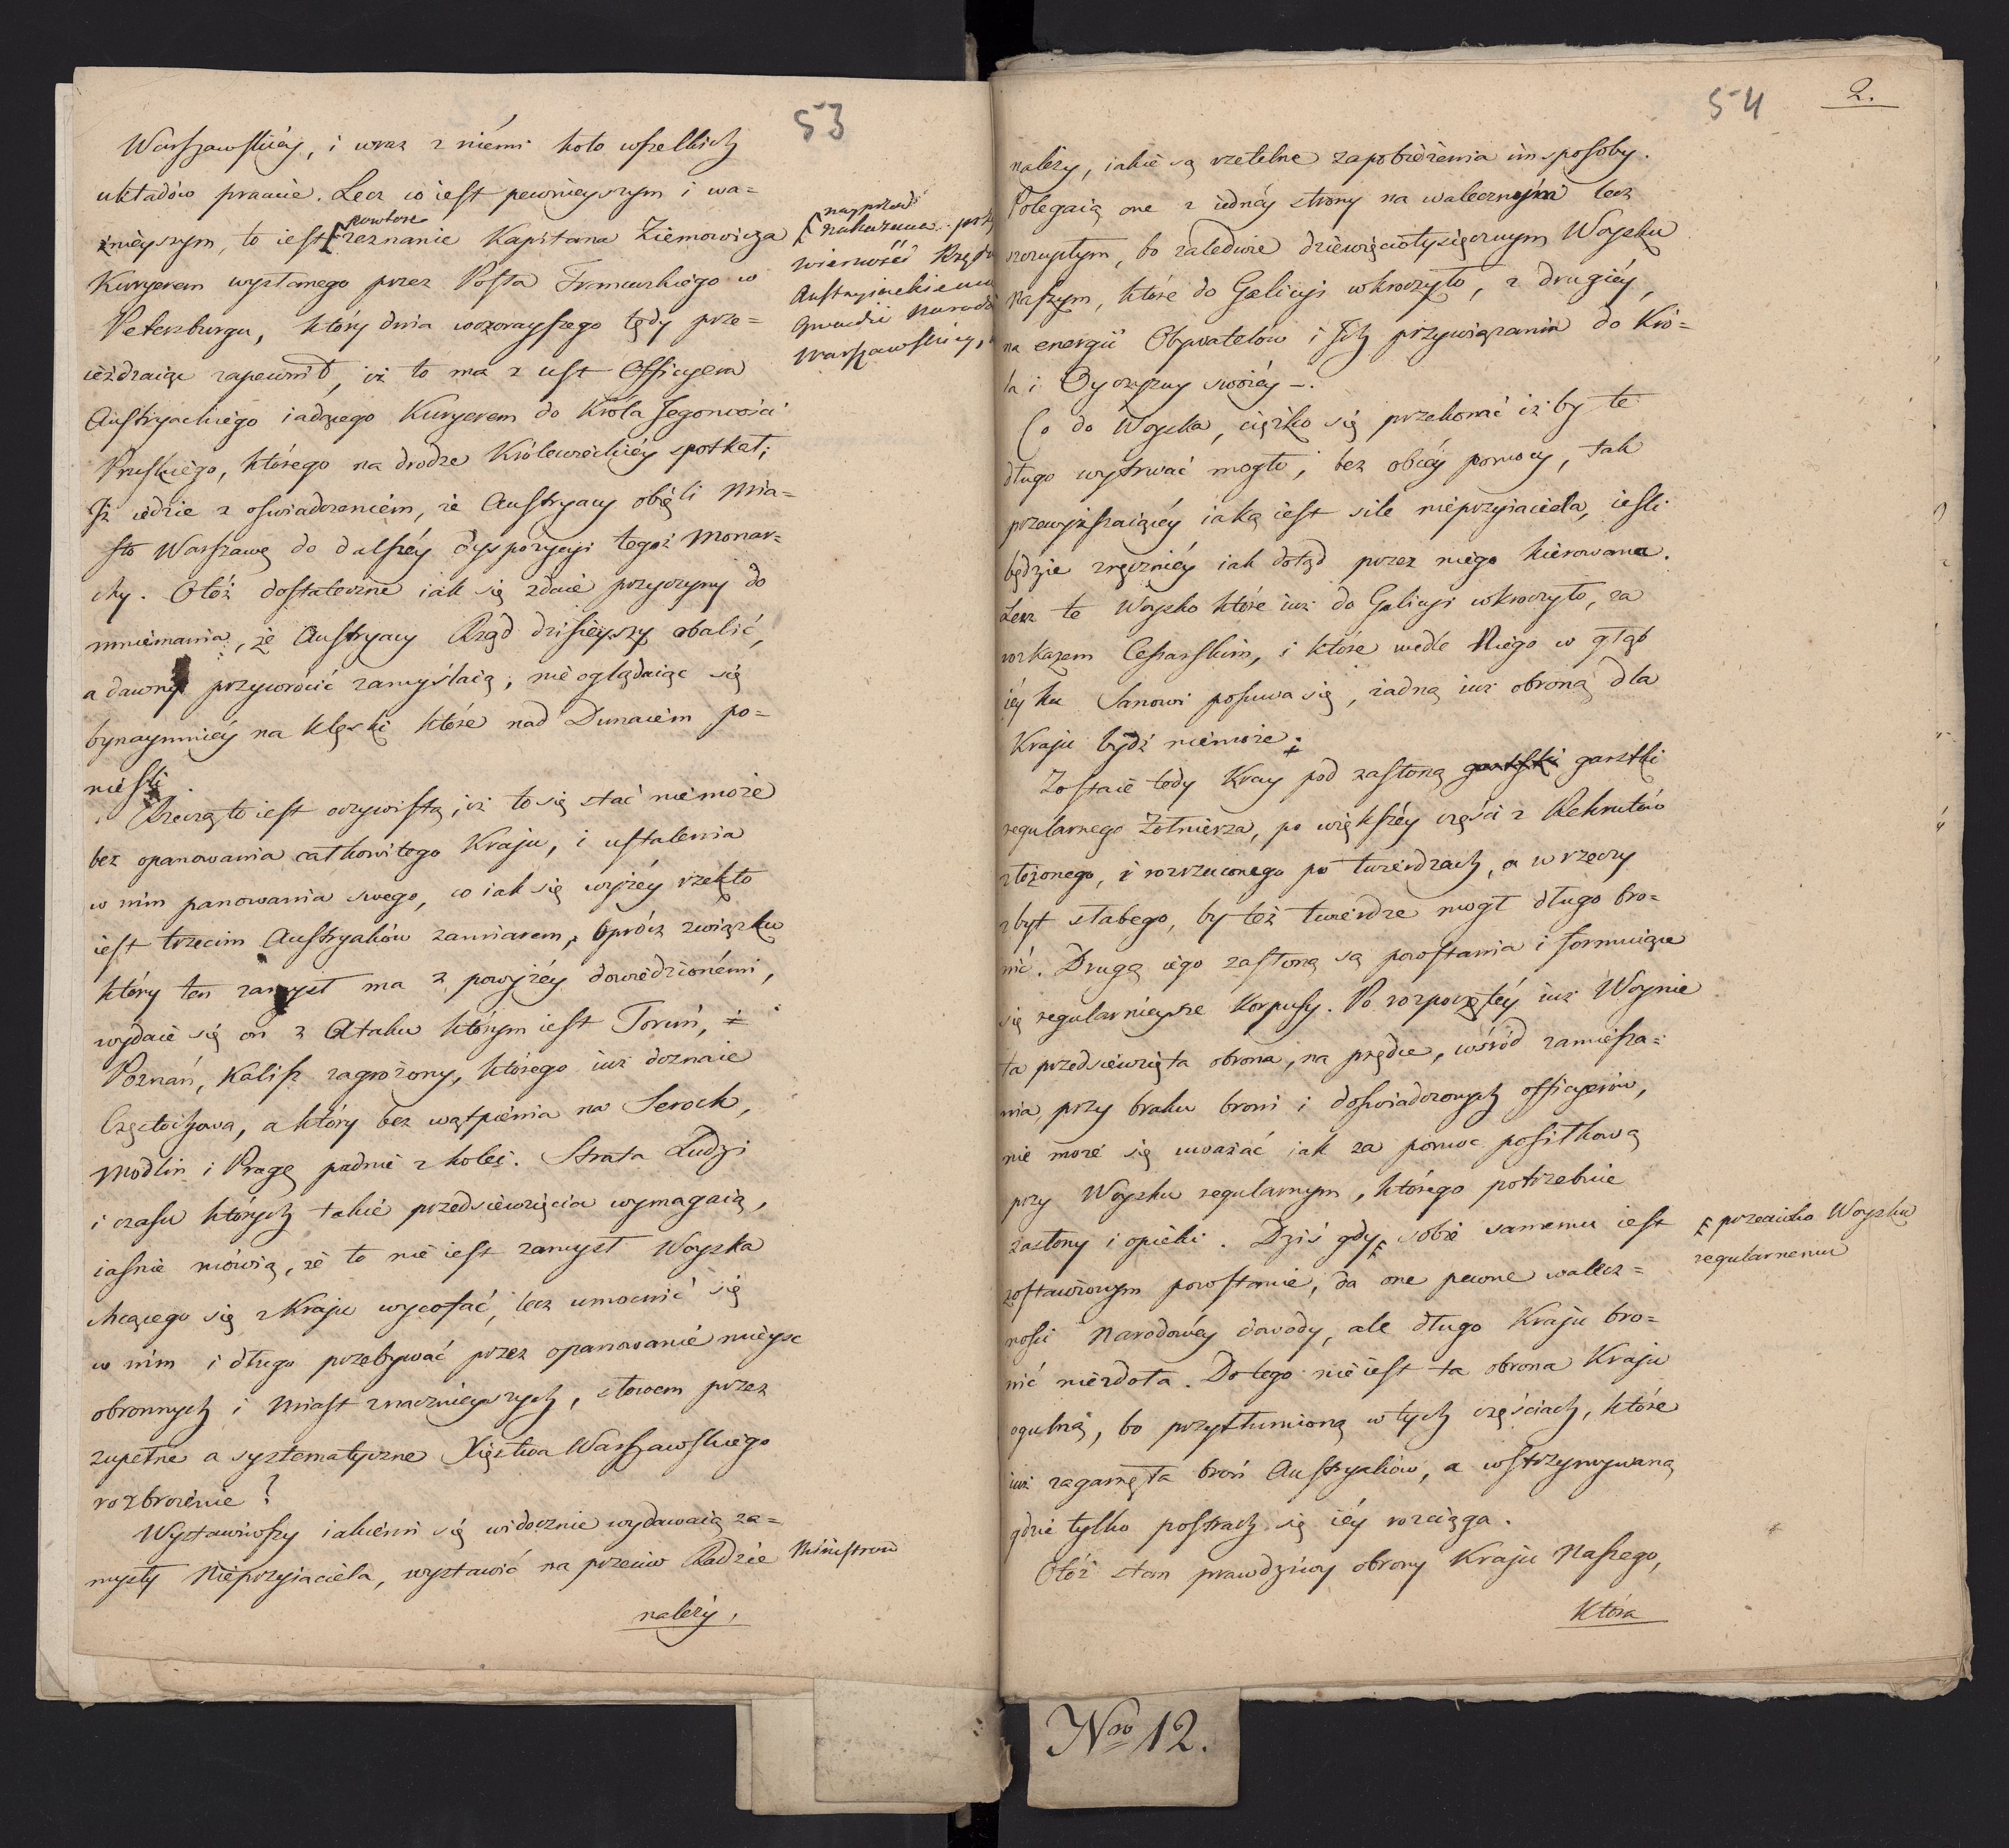 53
Warszawskiéy, i wraz z niémi koło wszelkich
układów pracuie. Lecz co iest pewnieyszym i wa=
żnieyszym, to iest powtore zeznanie Kapitana Ziemowicza
Kuryerem wysłanego przez Posła Francuzkiego w
Petersburgu, który dnia wczorayszego tędy prze=
ieżdzaiąc zapewnił, iż to ma z ust Officyera
Austryackiego iadącego Kuryerem do Króla Jegomości
Pruskiego, którego na drodze Królewieckiéy spotkał;
Iż iedzie z oświadczeniem, że Austryacy obięli Mia=
sto Warszawę do dalszéy dyspozycyi tegoż Monar=
chy. Otóż dostateczne iak się zdaie przyczyny do
mniemania, że Austryacy Rząd dzisieyszy obalić,
a dawny przywrócić zamyślaią, nie oglądaiąc się
bynaymniéy na klęski które nad Dunaiem po=
nieśli.
Rzeczą to iest oczywistą, iż to się stać niemoże
bez opanowania całkowitego Kraju, i ustalenia
w nim panowania swego, co iak się wyżéy rzekło
iest trzecim Austryaków zamiarem, Oprócz związku
który ten zamysł ma z powyżéy dowiedzionémi,
wydaie się on z Ataku którym iest Toruń,
Poznań, Kalisz zagrożony, którego iuż doznaie
Częstochowa, a który bez wątpienia na Serock,
Modlin i Pragę padnie z kolei. Strata Ludzi
i czasu których takie przedsiewzięcia wymagaią,
iaśnie mówią, że to nie iest zamysł Woyska
chcącego się z Kraju wycofać, lecz umocnić się
w nim i długo przebywać przez opanowanie mieysc
obronnych i Miast znacznieyszych, słowem przez
zupełne a systematyczne Xięstwa Warszawskiego
rozbroienie?
Wystawiwszy iakiemi się widocznie wydawaią za=
mysły Nieprzyiaciela, wystawić na przeciw Radzie Ministrow
należy,
nayprzód
nakazana
wierność Rządu
Austryackiemu
Gwardii Narod
Warszawskiey,
54
2.
należy, iakie są rzetelne zapobieżenia im sposoby.
Polegaią one z iednéy strony na walecznym lecz
szczupłym, bo zaledwie dziewięciotysięcznym Woysku
Naszym, które do Galicyi wkroczyło, z drugiéy,
na energii Obywatelów i Ich przywiązaniu do Kró=
la i Oyczyzny swoiéy –.
Co do Woyska, ciężko się przekonać iż by te
długo wytrwać mogło, bez obcéy pomocy, tak
przewyższaiącéy iaką iest sile nieprzyiaciela, iesli
będzie zręczniéy iak dotąd przez niego kierowana.
Lecz te Woysko które iuż do Galicyi wkroczyło, za
rozkazem Cesarskim, i które wedle Niego w głąb
iéy ku Sanowi posuwa się, żadną iuż obroną dla
Kraju bydź niemoże.
Zostaie tedy Kray pod zasłoną garstki garstki
regularnego Żołnierza, po większéy części z Rekrutów
złożonego, i rozrzuconego po twierdzach, a w rzeczy
zbyt słabego, by też twierdze mogł długo bro=
nić. Drugą iego zasłoną są powstania i formuiące
się regularnieysze Korpusy. Po rozpoczętéy iuż Woynie
ta przedsiewzięta obrona, na prędce, wśród zamiesza=
nia, przy braku broni i doświadczonych officyerów,
nie może się uważać jak za pomoc posiłkową
przy Woysku regularnym, którego potrzebuie
zasłony i opieki. Dziś gdy sobie samemu iest
zostawionym powstanie, da one pewne walecz=
ności Narodowéy dowody, ale długo Kraju bro=
nić niezdoła. Do tego nie iest ta obrona Kraju
ogulną, bo przytłumioną w tych częściach, które
iuż zagarnęła broń Austryaków, a wstrzymywaną
gdzie tylko postrach się iéy rozciąga.
Otóż stan prawdziwy obrony Kraju Naszego,
Która
przeciwko Woysku
regularnemu
Nro 12.